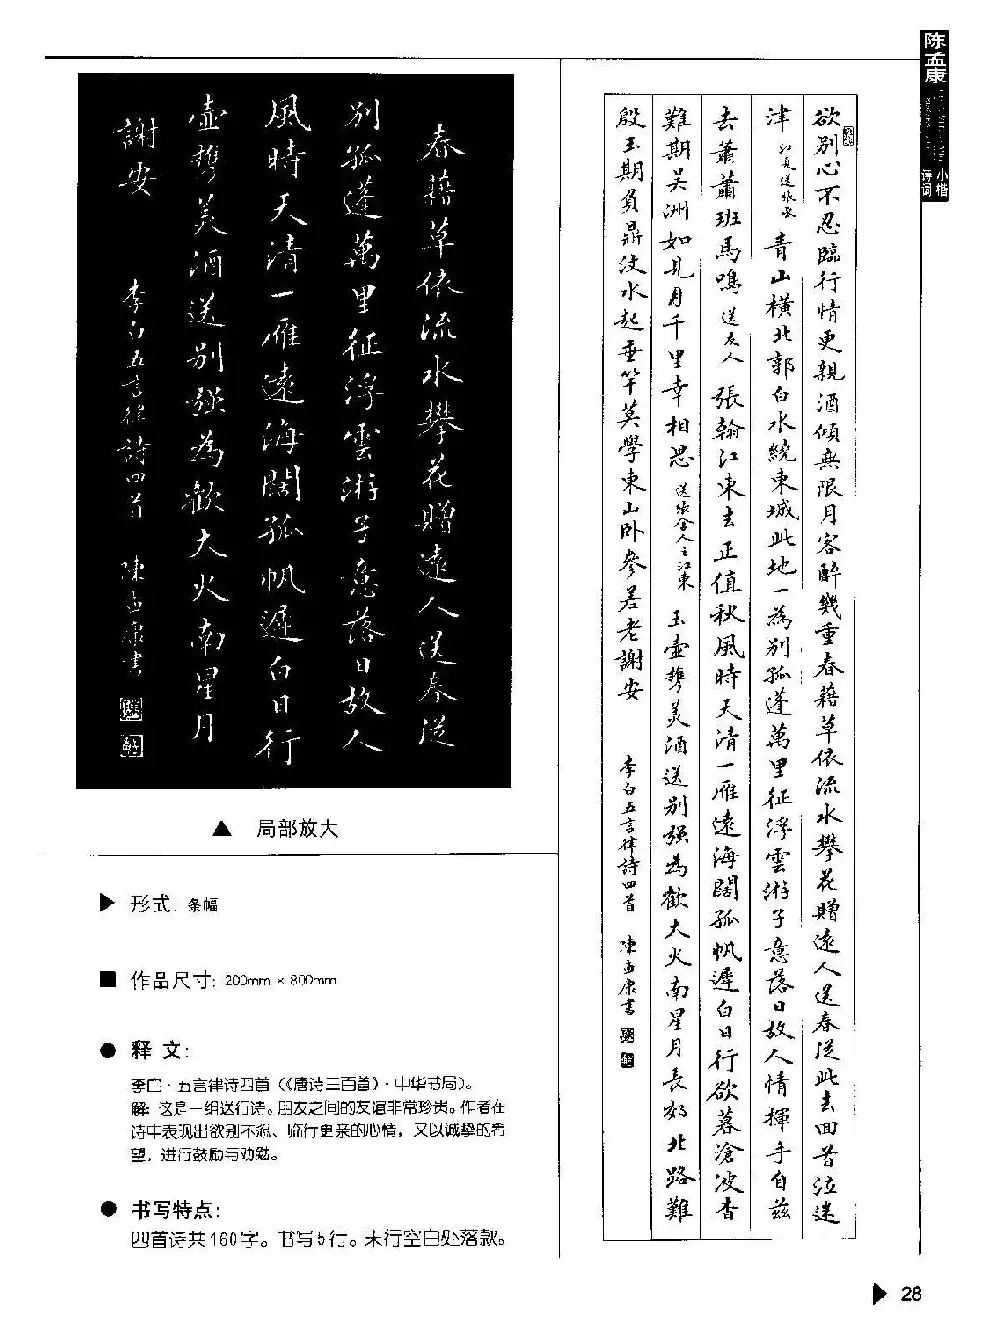 陈孟康
小楷
诗词
春藉草依流水攀花贈遠人送春從
别孤蓬萬里征浮雲游子意落日故人
風時天清一雁遠海闊孤帆遲白日行
壺攜美酒送别強為歡大火南星月
謝安 李白五言律詩四首 陳孟康書
▲ 局部放大
欲别心不忍臨行情更親酒傾無限月客醉幾重春藉草依流水攀花贈遠人送春從此去回首泣迷
津 江夏送張丞 青山橫北郭白水繞東城此地一為别孤蓬萬里征浮雲游子意落日故人情揮手自兹
去蕭蕭班馬鳴 送友人 張翰江東去正值秋風時天清一雁遠海闊孤帆遲白日行欲暮滄波杳
難期吴洲如見月千里幸相思 送張舍人之江東 玉壺攜美酒送别強為歡大火南星月長郊北路難
殷王期負鼎汶水起垂竿莫學東山卧參差老謝安 李白五言律詩四首 陳孟康書
▶ 形式: 条幅
■ 作品尺寸: 200mm × 800mm
● 释 文:
李白·五言律诗四首（《唐诗三百首》·中华书局）。
解: 这是一组送行诗。朋友之间的友谊非常珍贵。作者在
诗中表现出欲别不忍、临行更亲的心情，又以诚挚的希
望，进行鼓励与劝勉。
● 书写特点:
四首诗共160字。书写5行。末行空白处落款。
▶ 28